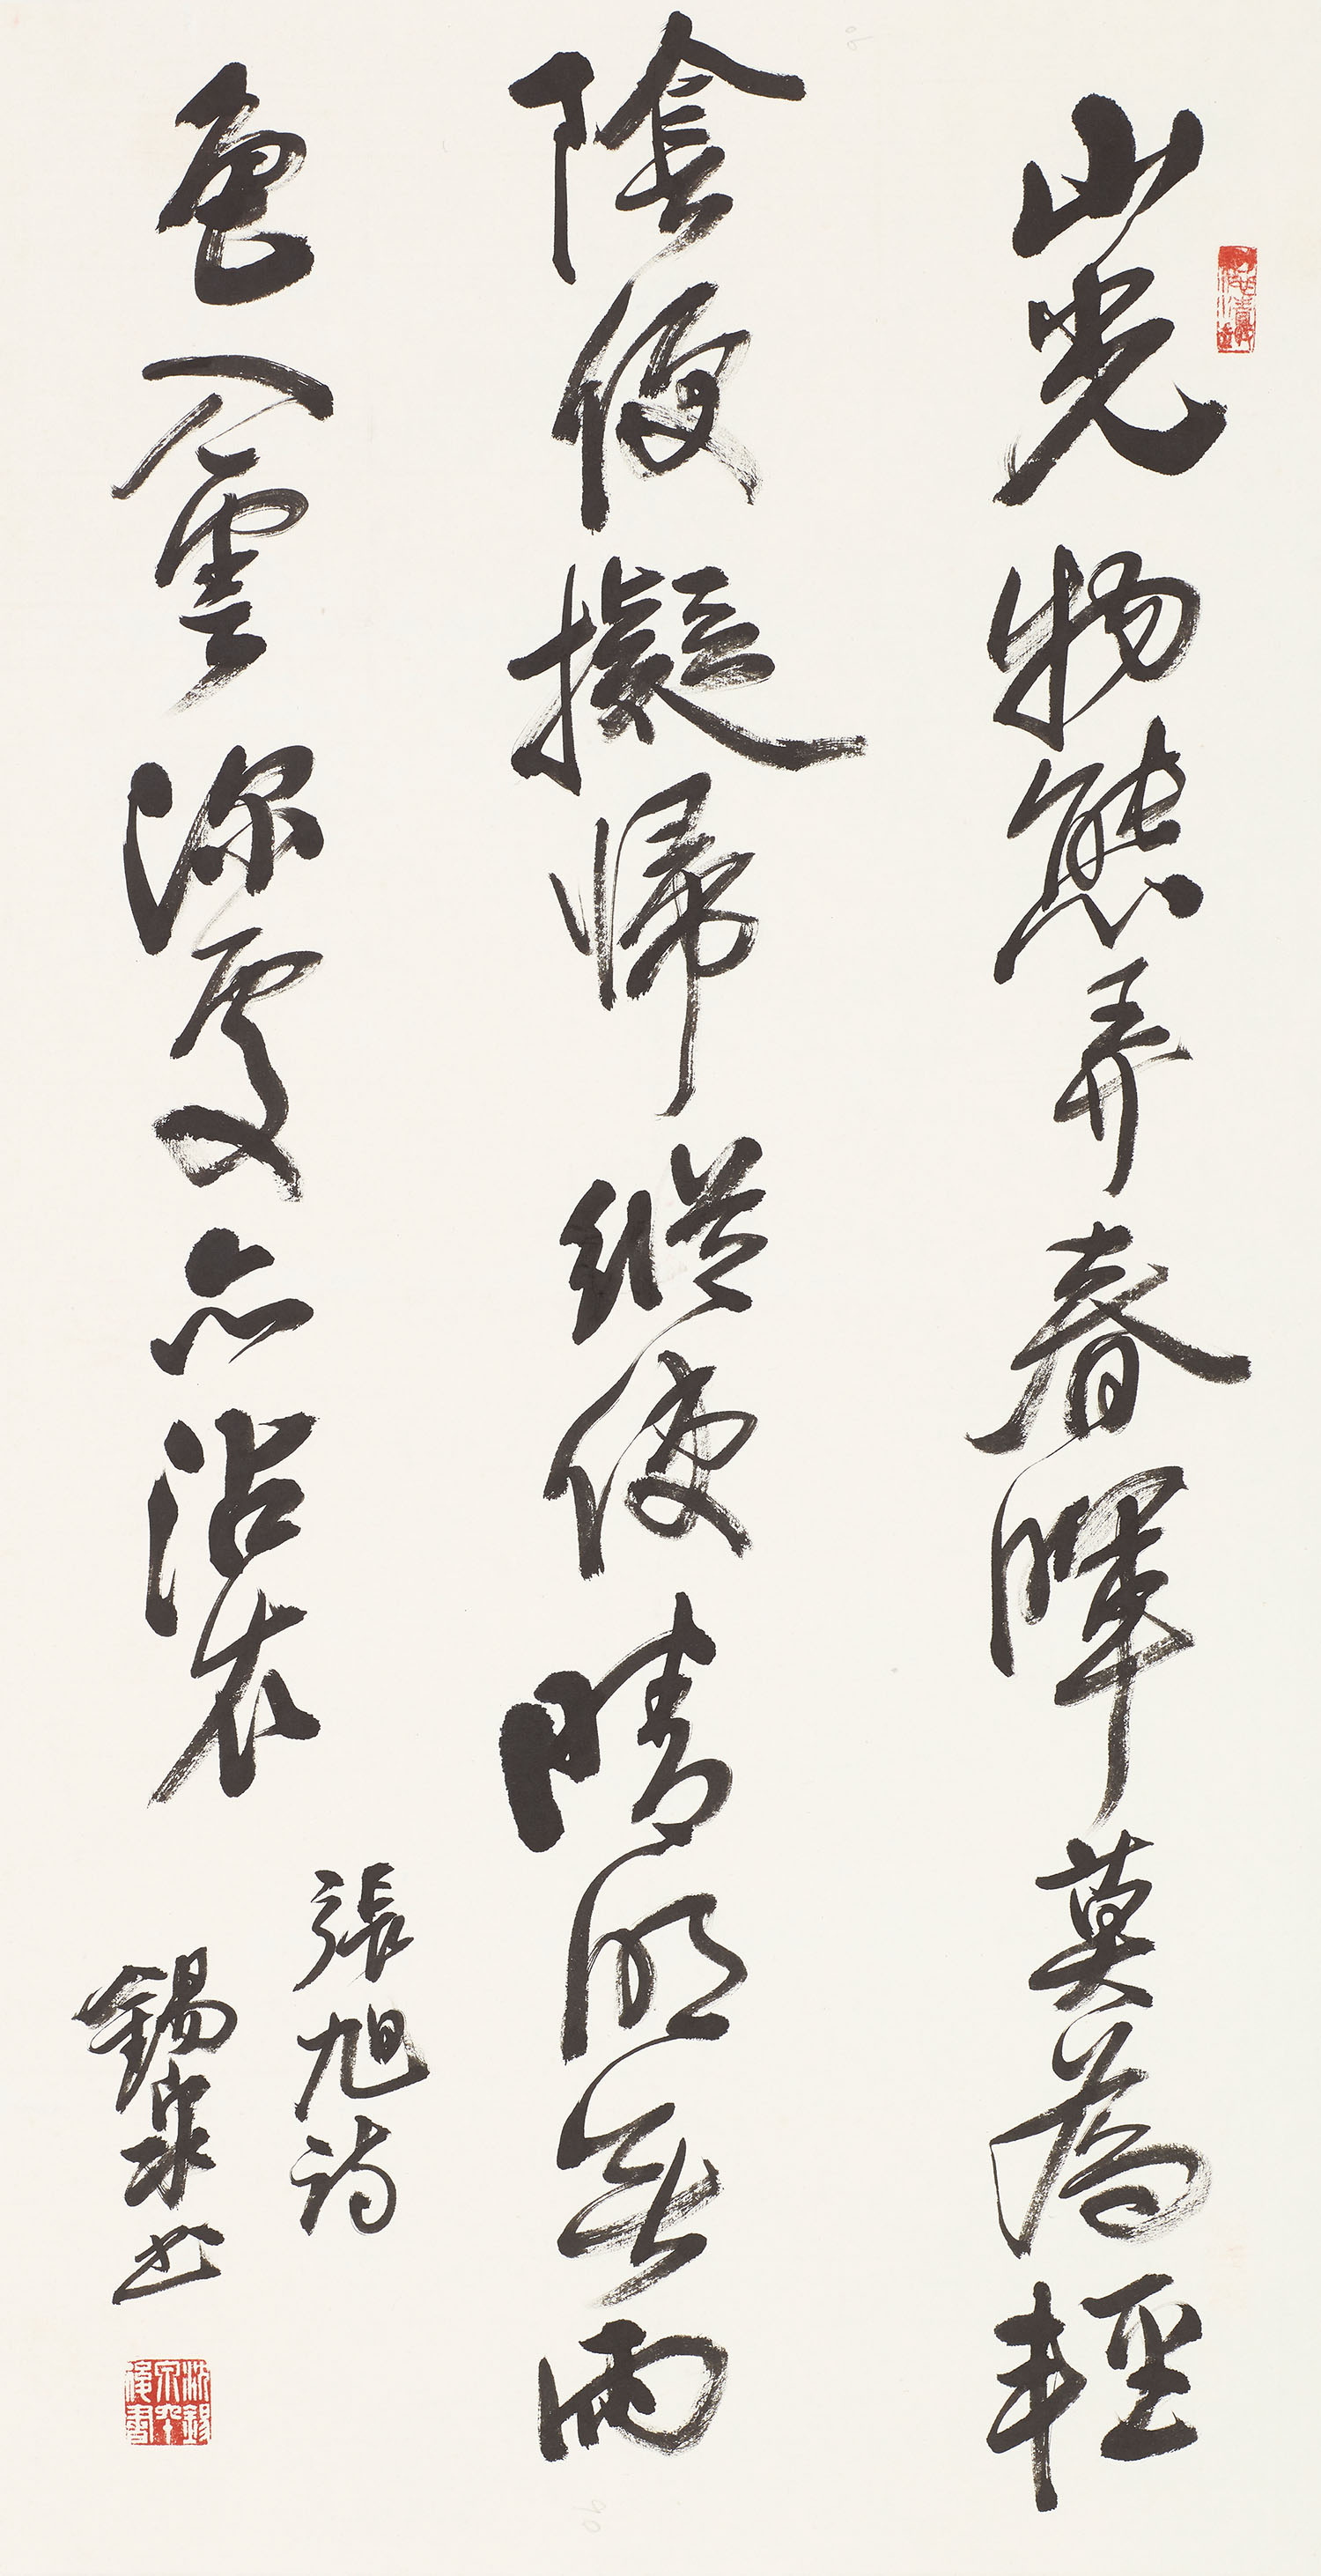 山光物態弄春暉莫為輕
陰便擬歸縱使晴明無雨
色入雲深處亦沾衣
張旭詩
錫泉書